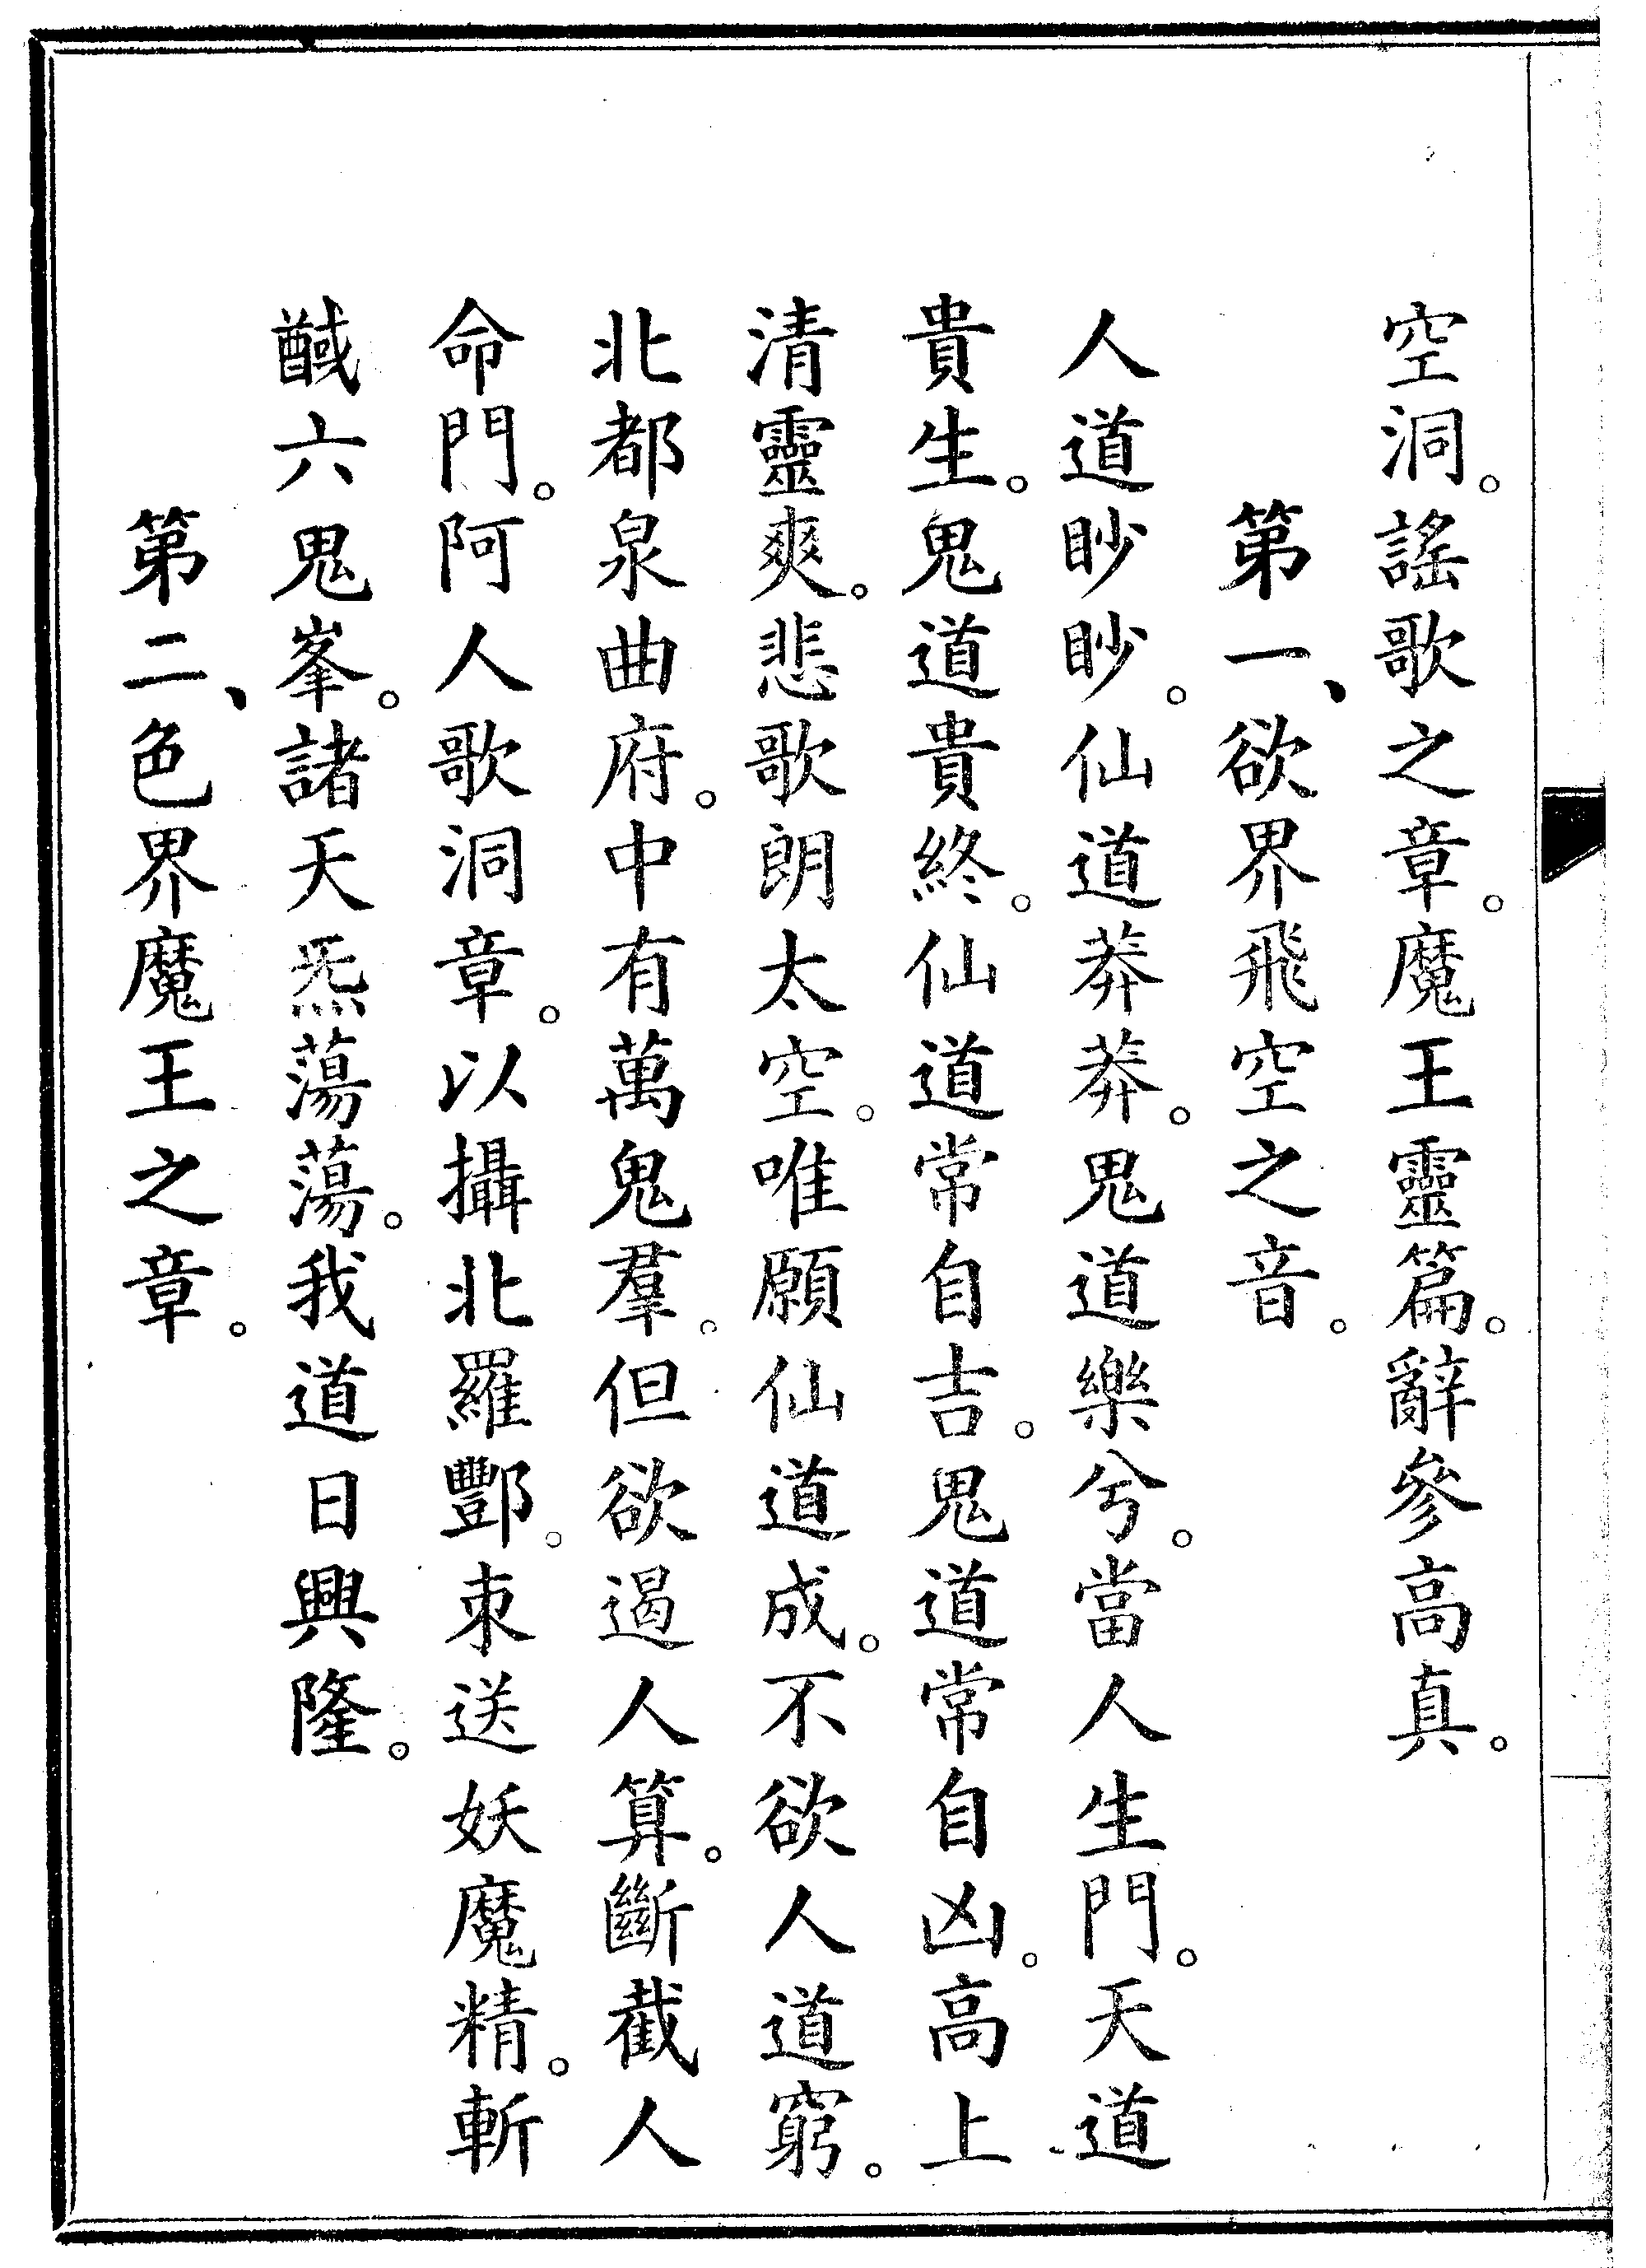 空洞。謠歌之章。魔王靈篇。辭參高真。
第一、欲界飛空之音。
人道眇眇。仙道莽莽。鬼道樂兮。當人生門。天道
貴生。鬼道貴終。仙道常自吉。鬼道常自凶。高上
清靈爽。悲歌朗太空。唯願仙道成。不欲人道窮。
北都泉曲府。中有萬鬼羣。但欲遏人算。斷截人
命門。阿人歌洞章。以攝北羅酆。束送妖魔精。斬
馘六鬼峯。諸天炁蕩蕩。我道日興隆。
第二、色界魔王之章。